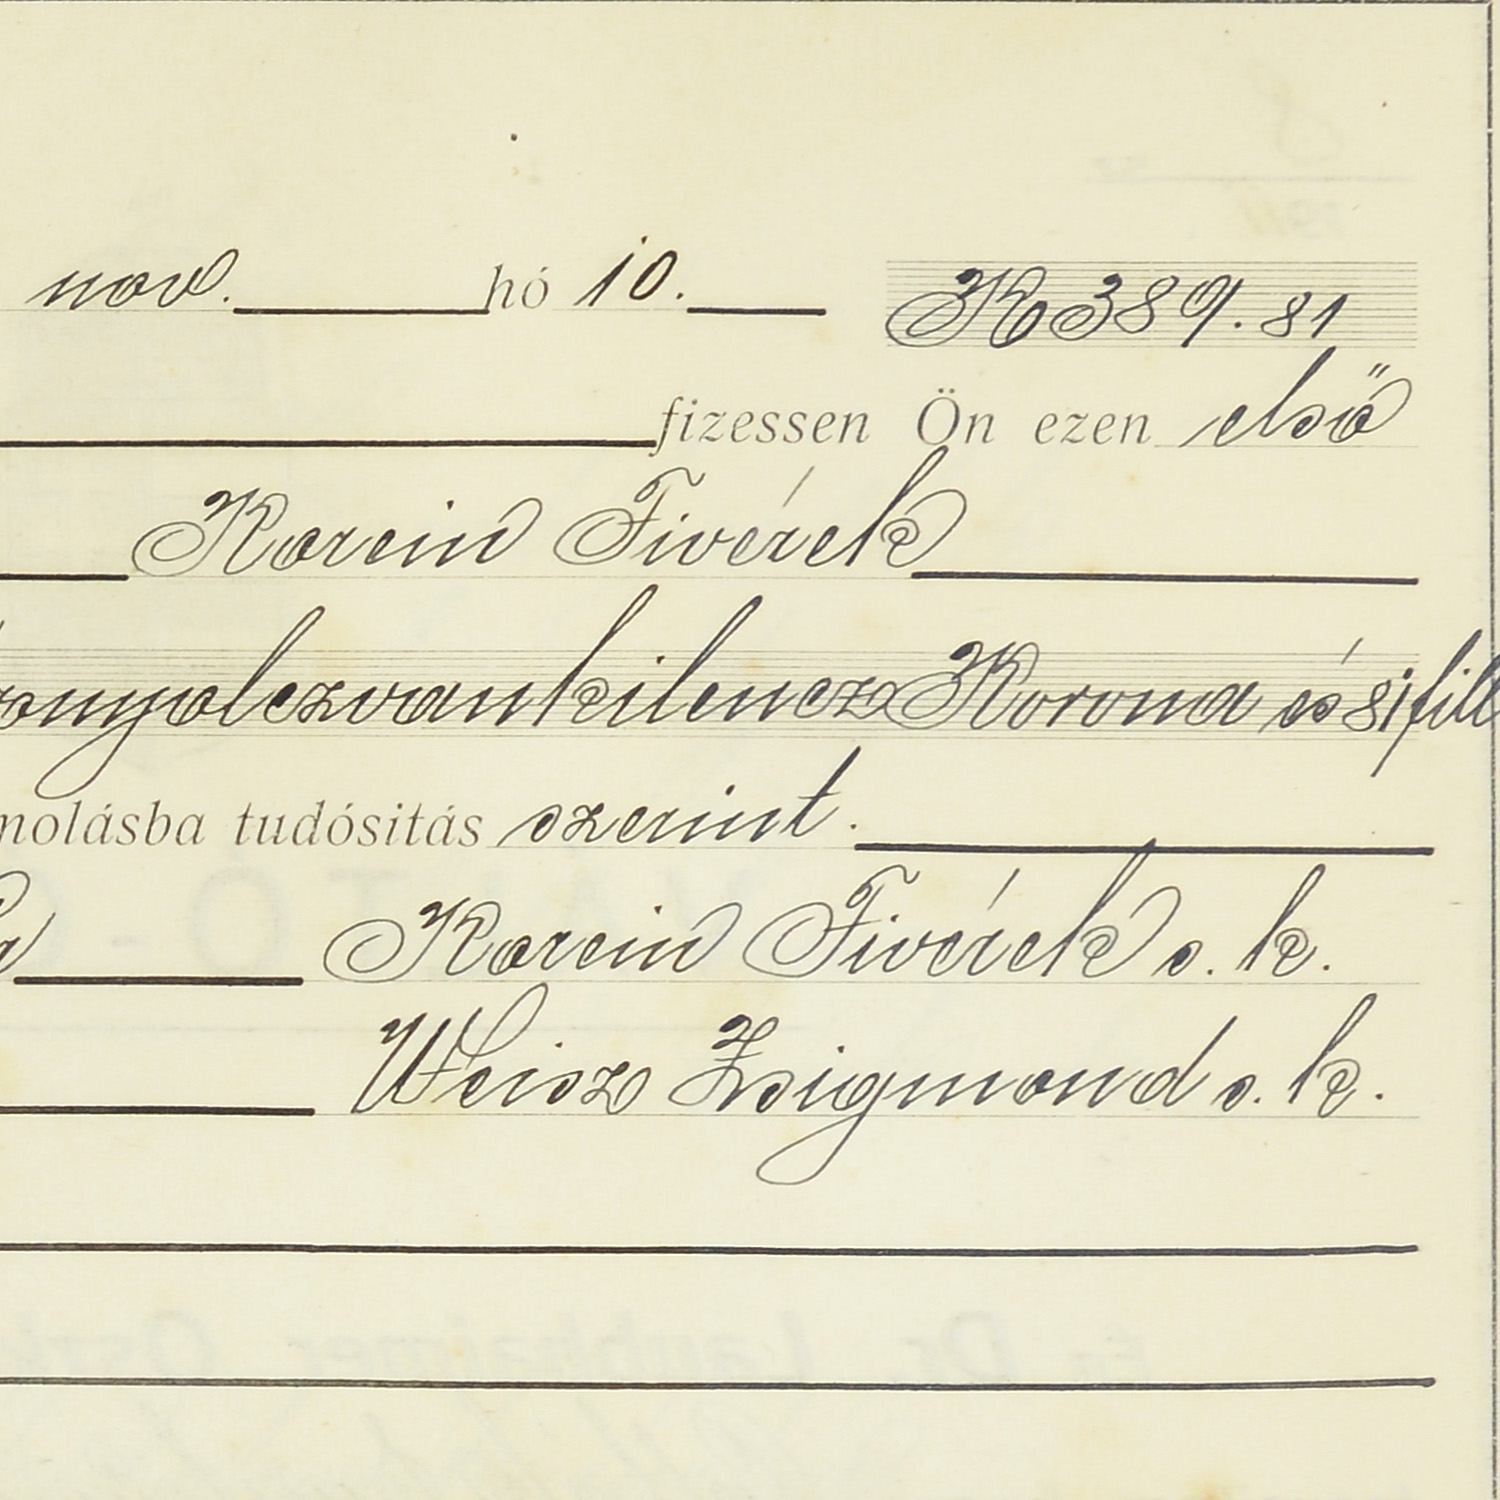 nov. hó 10. K 389.81
fizessen Ön ezen első
Korein Fivérek
nyolczvankilencz Korona és 81 fill
molásba tudósitás szerint.
Korein Fivérek s. k.
Weisz Zsigmond s. k.